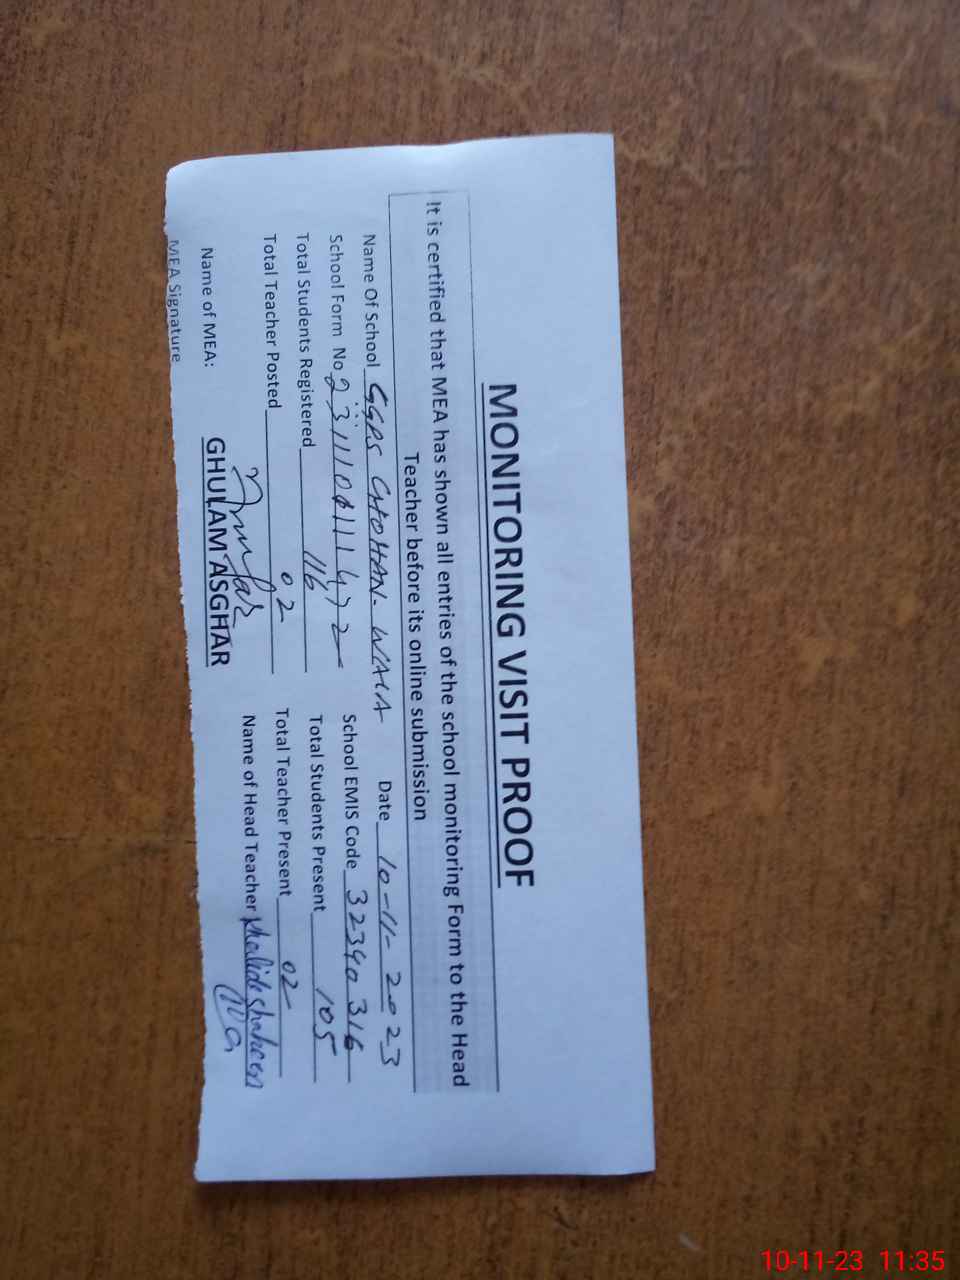 MONITORING VISIT PROOF
It is certified that MEA has shown all entries of the school monitoring Form to the Head
Teacher before its online submission
Name Of School GGPS CHOHAN-WALA Date 10-11-2023
School Form No School EMIS Code 32340316
Total Students Registered 116 Total Students Present 105
Total Teacher Posted 02 Total Teacher Present 02
Name of MEA: GHULAM ASGHAR Name of Head Teacher Khalida shaheen
MEA Signature
10-11-23 11:35